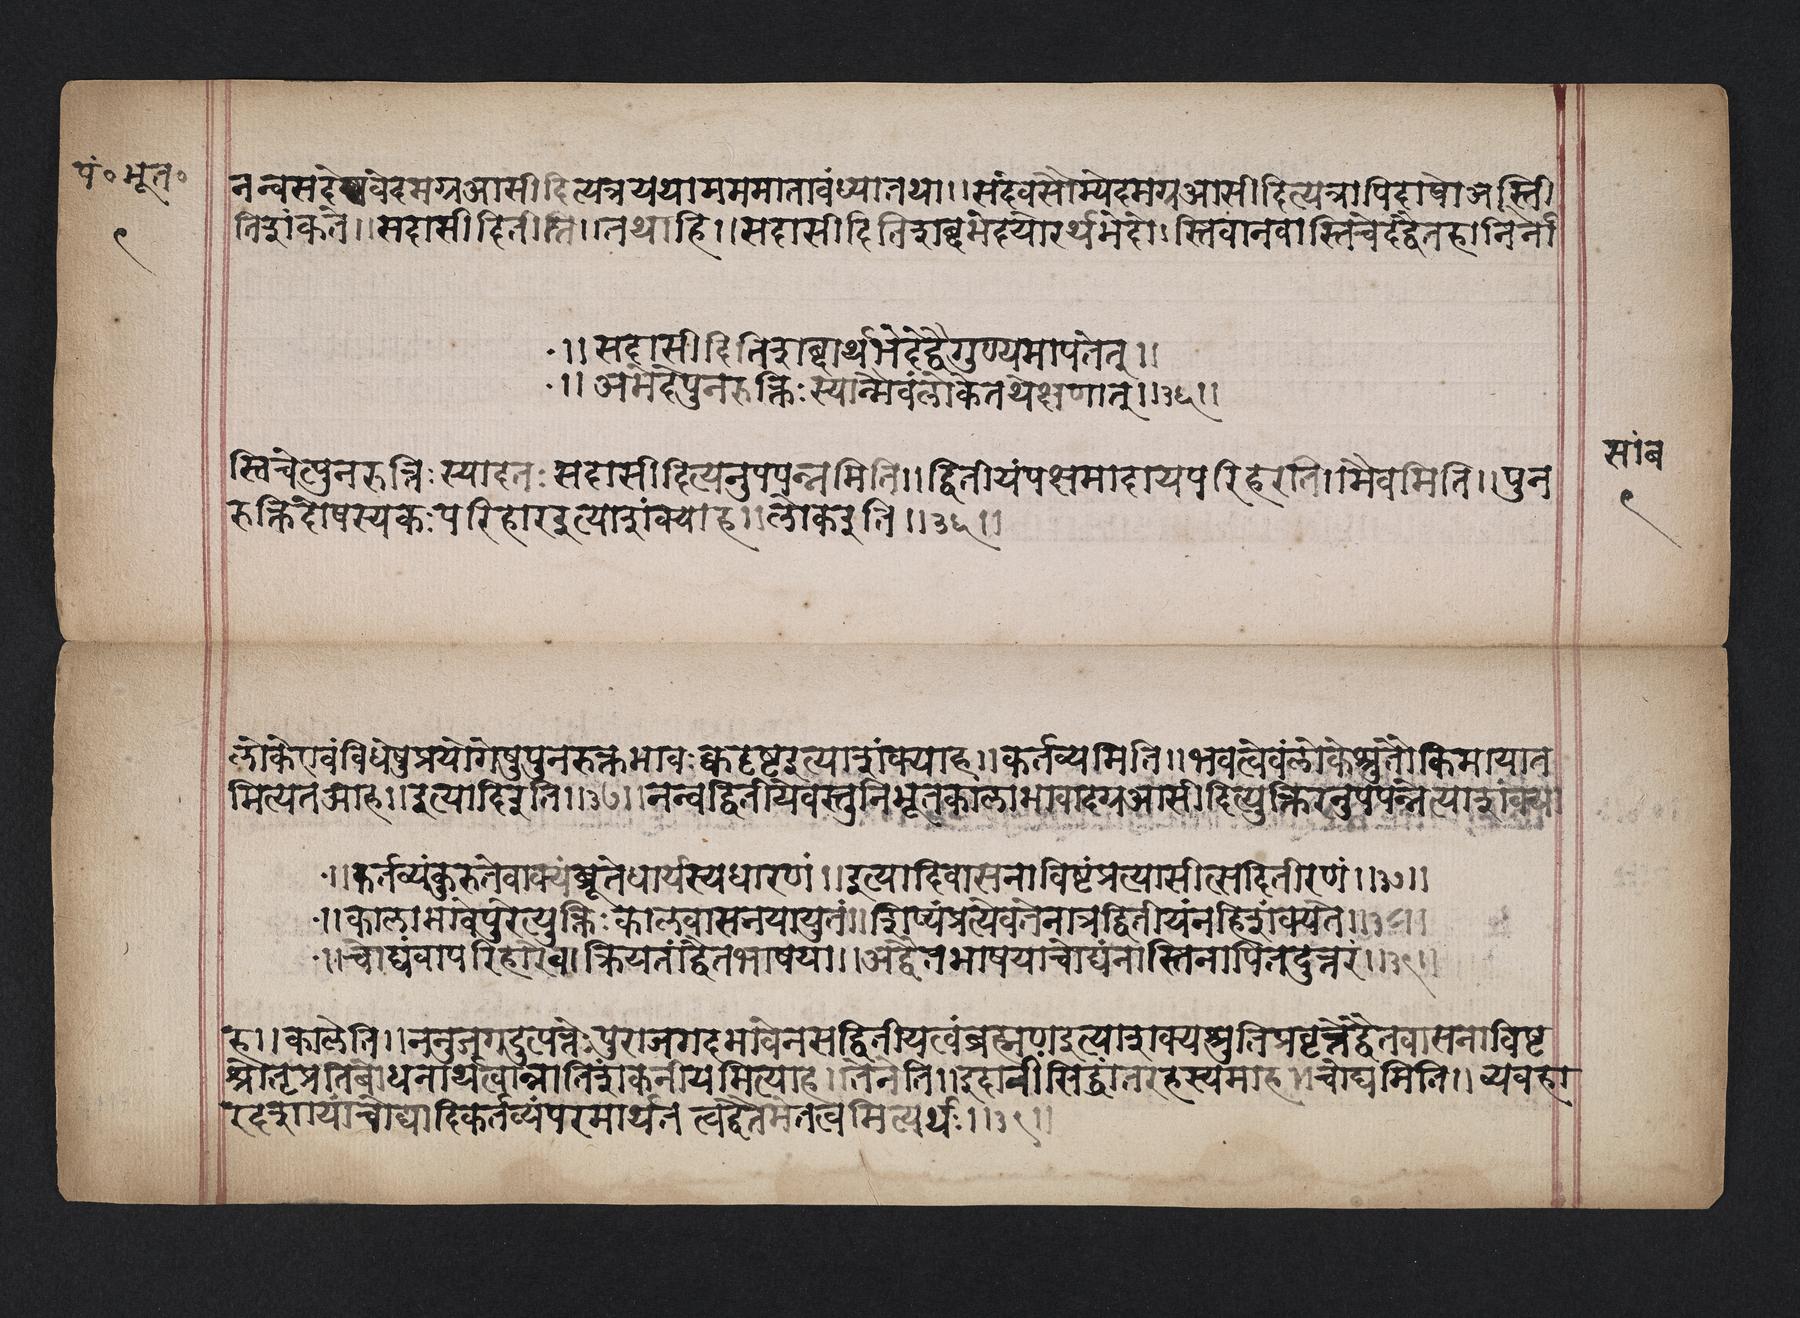 पं॰भूत॰
९
नन्वसदेवेदमग्रआसीदित्यत्रयथाममममातावंध्यातथा।।सदेवसौम्येदमग्रआसीदित्यत्रापिदोषोऽस्त्वि
तिशंकते।।सदासीदितीति।।तथाहि।।सदासीदितिशब्दभेदयोरर्थभेदो।स्तिवानवास्तिचेदद्वैतहानिर्ना
।।सदासीदितिशब्दार्थभेदेद्वैगुण्यमापतेत्।।
।।अभेदेपुनरुक्तिःस्यान्मैवंलोकेतथेक्षणात्।।३६।।
स्तिचेत्पुनरुक्तिःस्यादतःसदासीदित्यनुपपन्नमिति।।द्वितीयंपक्षमादायपरिहरति।।मैवमिति।।पुन
रुक्तिदोषस्यकःपरिहारइत्याशंक्याह।।लोकइति।।३६।।
सांब
९
लोकेएवंविधेषुप्रयोगेषुपुनरुक्तभावःक्वदृष्टइत्याशंक्याह।।कर्तव्यमिति।।भवत्वेवंलोकेश्रुतौकिमायात
मित्यतआह।।इत्यादिइति।।३७।।नन्वद्वितीयेवस्तुनिभूतकालाभावादग्रआसीदित्युक्तिरनुपपन्नेत्याशंक्या
।।कर्तव्यंकुरुतेवाक्यंब्रूतेधार्यस्यधारणं।।इत्यादिवासनाविष्टंप्रत्यासीत्सदितीरणं।।३७।।
।।कालाभावेपुरेत्युक्तिःकालवासनयायुतं।।शिष्यंप्रत्येवतेनात्रद्वितीयंनहिशंक्यते।।३८।।
।।चोद्यंवापरिहारोवाक्रियतांद्वैतभाषया।।अद्वैतभाषयाचोद्यंनास्तिनापितदुत्तरं।।३९।।
ह।।कालेति।।ननुजगदुत्पत्तेःपुराजगदभावेनसद्वितीयत्वंब्रह्मणइत्याशंक्यश्रुतिप्रवृत्तेर्द्वैतवासनाविष्ट
श्रोतृप्रतिबोधनार्थत्वान्नातिशंकनीयमित्याह।।तेनेति।।इदानींसिद्धांतरहस्यमाह।।चोद्यमिति।।व्यवहा
रदशायांचोद्यादिकर्तव्यंपरमार्थतत्वद्वैतमेतत्वमित्यर्थः।।३९।।